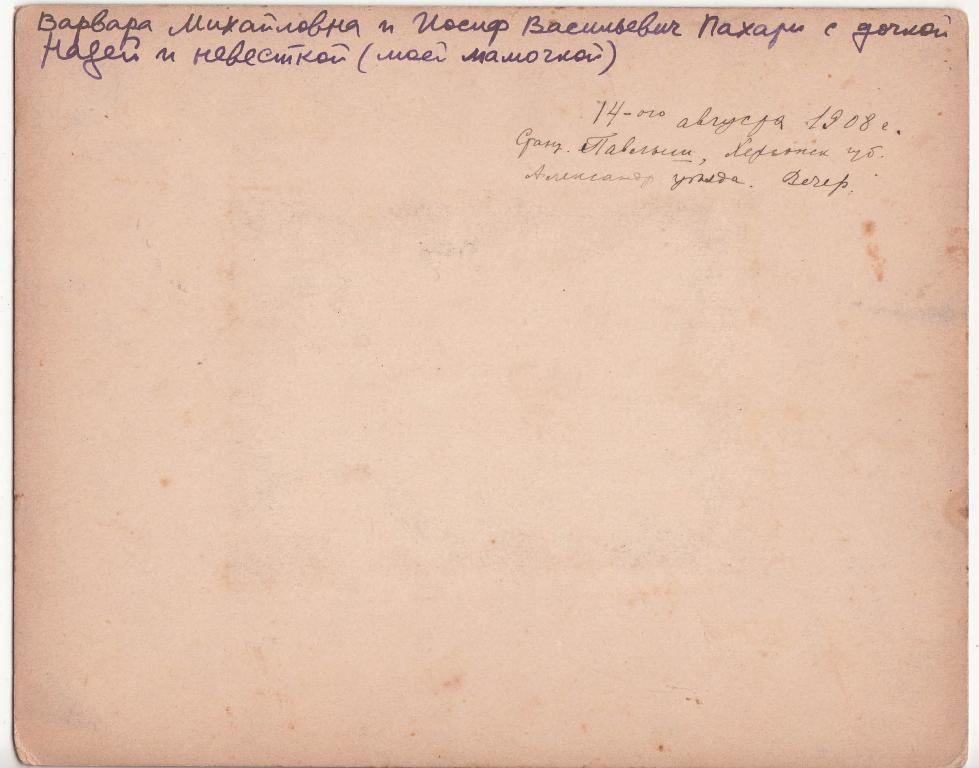 Варвара Михайловна и Иосиф Васильевич Пахари с дочкой
Надей и невесткой (моей мамочкой)
14-ого августа 1908 г.
Станц. Павлыш, Херсонск губ.
Александр уезда. Вечер.